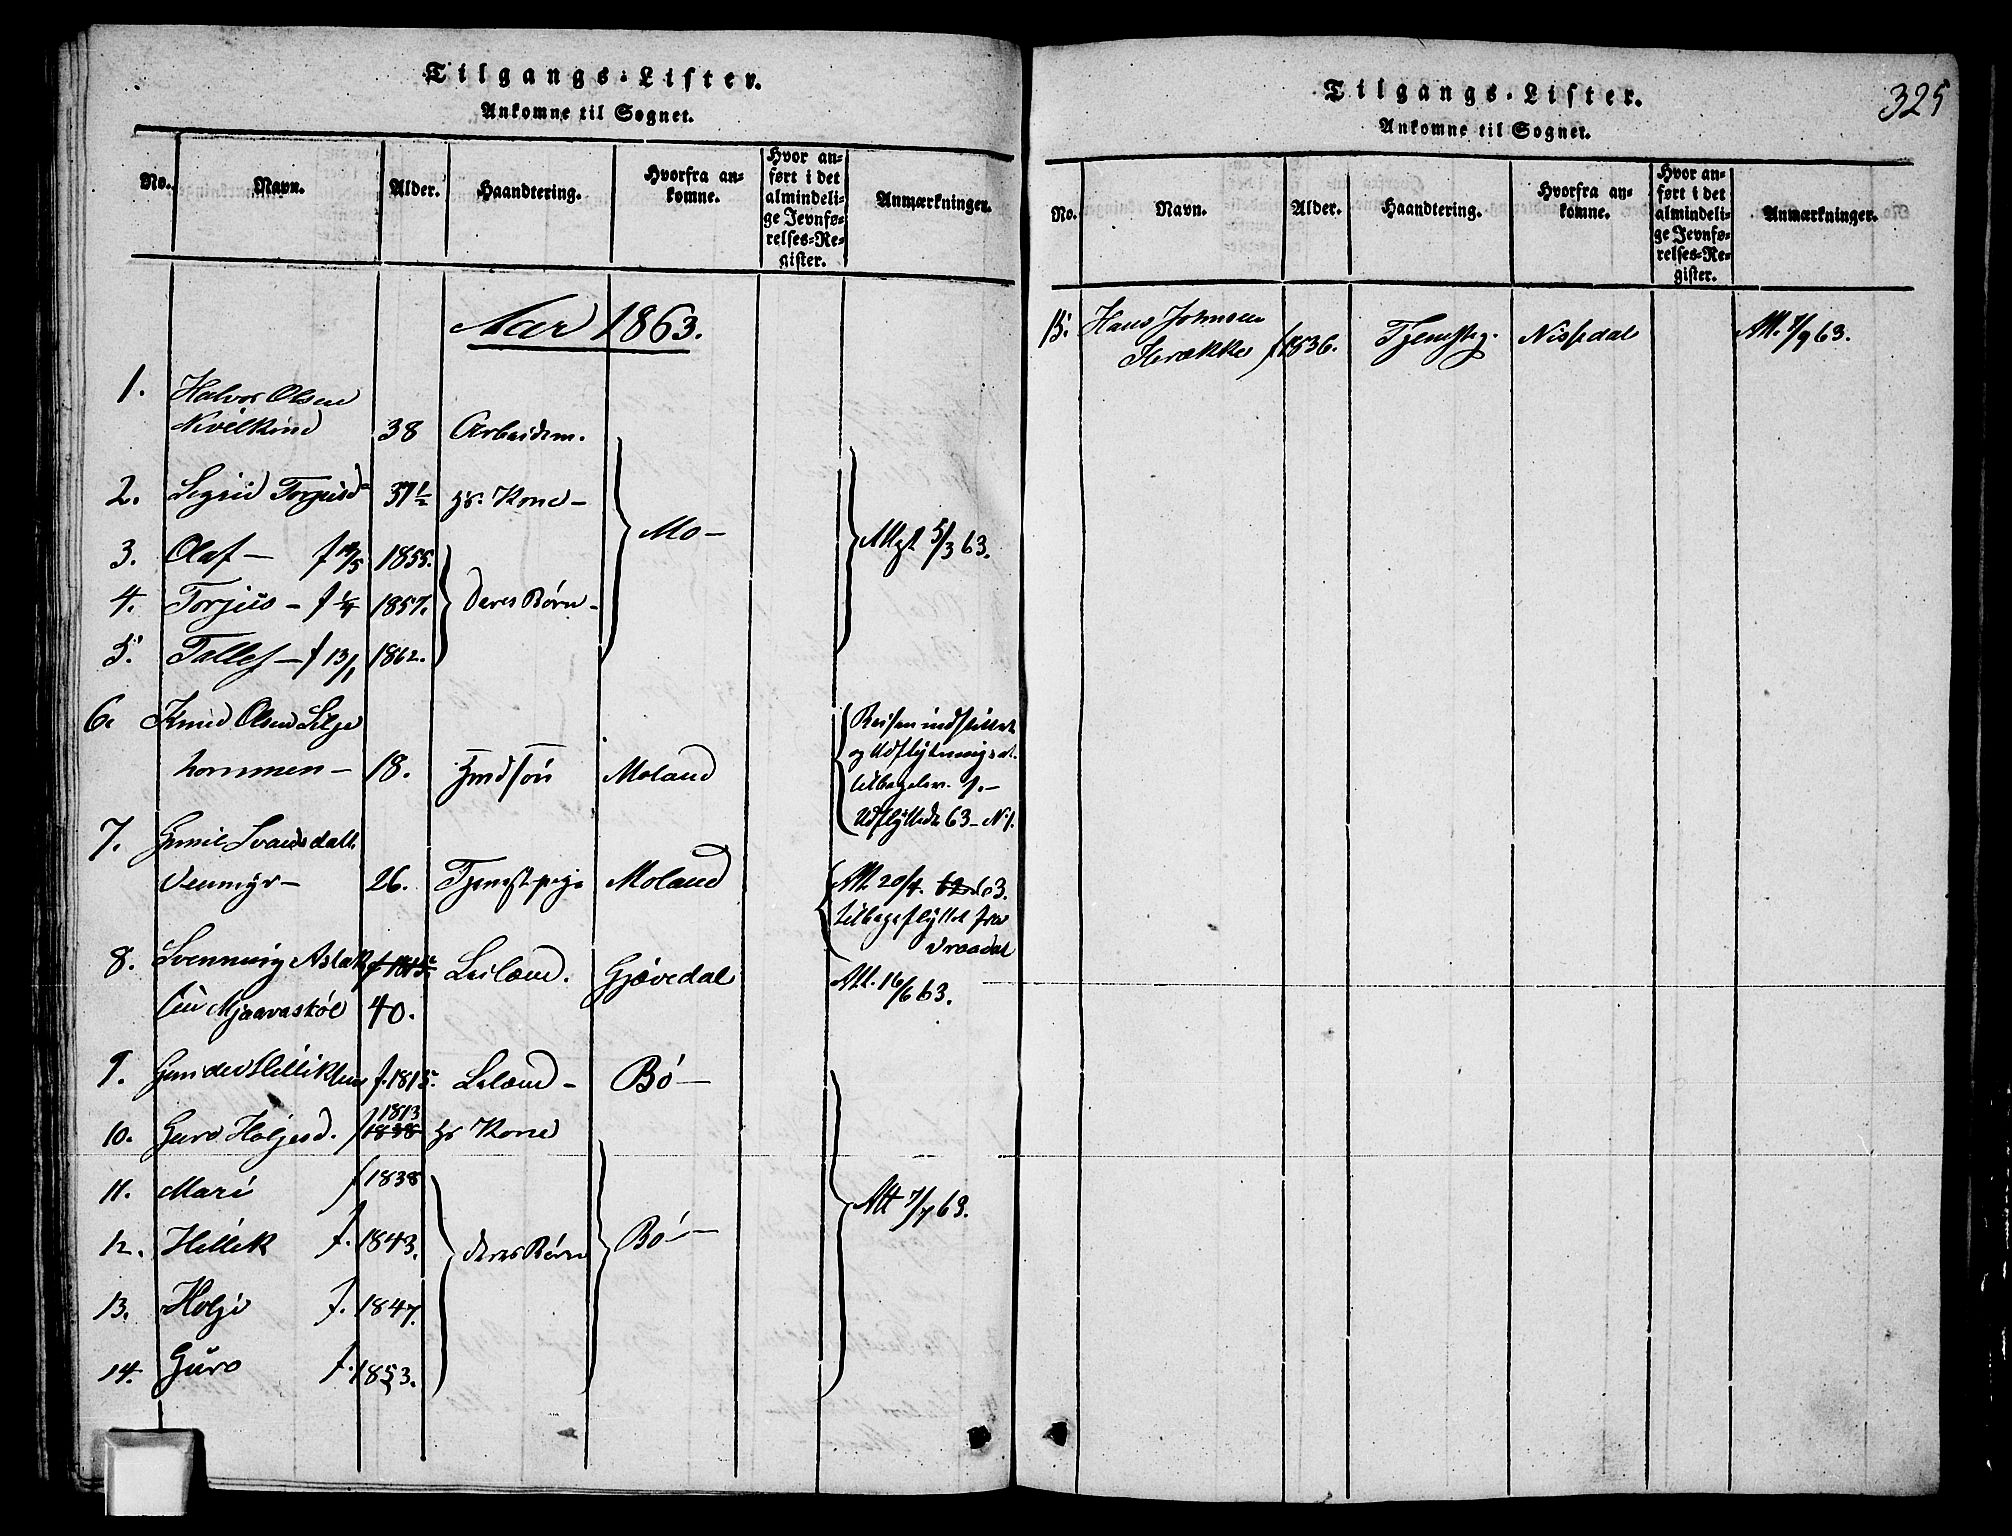 Tilgangs-Lister.
Ankomne til Sognet.
No. Navn. Alder. Haandtering. Hvorfra ankomne. Hvor anført i det almindelige Jevnførelses-Register. Anmærkninger.
Aar 1863.
1. Halvor Olsen
Kvilkind 38 Arbeidsm.
2. Sigrid Torjusd 37½ hs. Kone - Mo - Attst 5/3 63.
3. Olaf - f 1855.
4. Torjus - f 1857. deres Børn -
5. Tallef - f 13/1 1862.
6. Knud Olsen Silje
hommen - 18. Moland
Reisen indstillet
og Udflytningsat.
tilbagelev.
Udflyttede 63 -
7. Gunil Svensdatt.
Venmyr - 26. Tjenestpige Moland
Att. 20/4. 62 63.
tilbageflyttet fra
Vraadal
8. Svenning Aslak f 1815 Leilænd. Gjøvedal Att. 16/6 63.
Mjaavaskøl 40.
9. Gunder Helliksen f. 1815. Leilænd - Bø -
10. Guro Holjesd. f 1838 1813 hs Kone
11. Mari f 1838
Att 7/7 63.
12. Hellik f. 1843. deres Børn Bø -
13. Holje f. 1847.
14. Guro f. 1853.
325
Tilgangs-Lister.
Ankomne til Sognet.
No. Navn. Alder. Haandtering. Hvorfra ankomne. Hvor anført i det almindelige Jevnførelses-Register. Anmærkninger.
15. Hans Johnsen
f 1836. Tjenestg. Nissedal Att. 7/9 63.